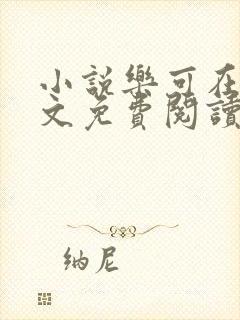 小説樂可在
文免費閱讀
纳尼